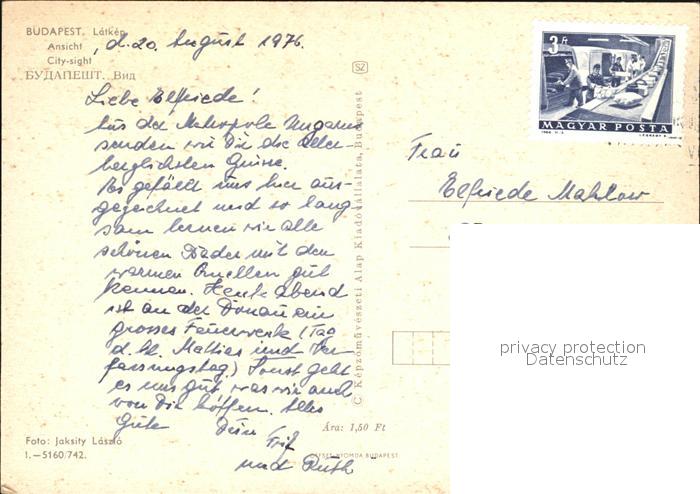 BUDAPEST. Látkép
Ansicht
City-sight
БУДАПЕШТ. Вид
, d. 20. August 1976.
Liebe Elfriede!
Aus der Metropole Ungarns
senden wir Dir die aller-
herzlichsten Grüsse.
Es gefällt uns hier aus-
gezeichnet und so lang-
sam lernen wir alle
schönen Bäder mit den
warmen Quellen gut
kennen. Heute abend
ist an der Donau ein
grosses Feuerwerk (Tag
d. hl. Mathias und Ver-
fassungstag.) Sonst geht
es uns gut, was wir auch
von Dir hoffen. Alles
Gute Dein
Fritz
und Ruth
Foto: Jaksity László
I.—5160/742.
Ára: 1,50 Ft
OFFSET-NYOMDA BUDAPEST
SZ
C. Képzőművészeti Alap Kiadóvállalata, Budapest
3 Ft
MAGYAR POSTA
Frau
Elfriede Mahlow
privacy protection
Datenschutz